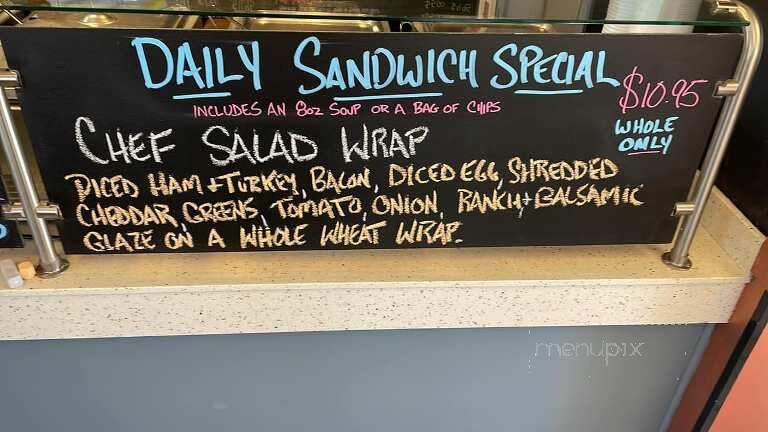 DAILY SANDWICH SPECIAL
INCLUDES AN 8OZ SOUP OR A BAG OF CHIPS
$10.95
WHOLE
ONLY
CHEF SALAD WRAP
DICED HAM + TURKEY, BACON, DICED EGG, SHREDDED
CHEDDAR, GREENS, TOMATO, ONION, RANCH + BALSAMIC
GLAZE ON A WHOLE WHEAT WRAP.
menupix